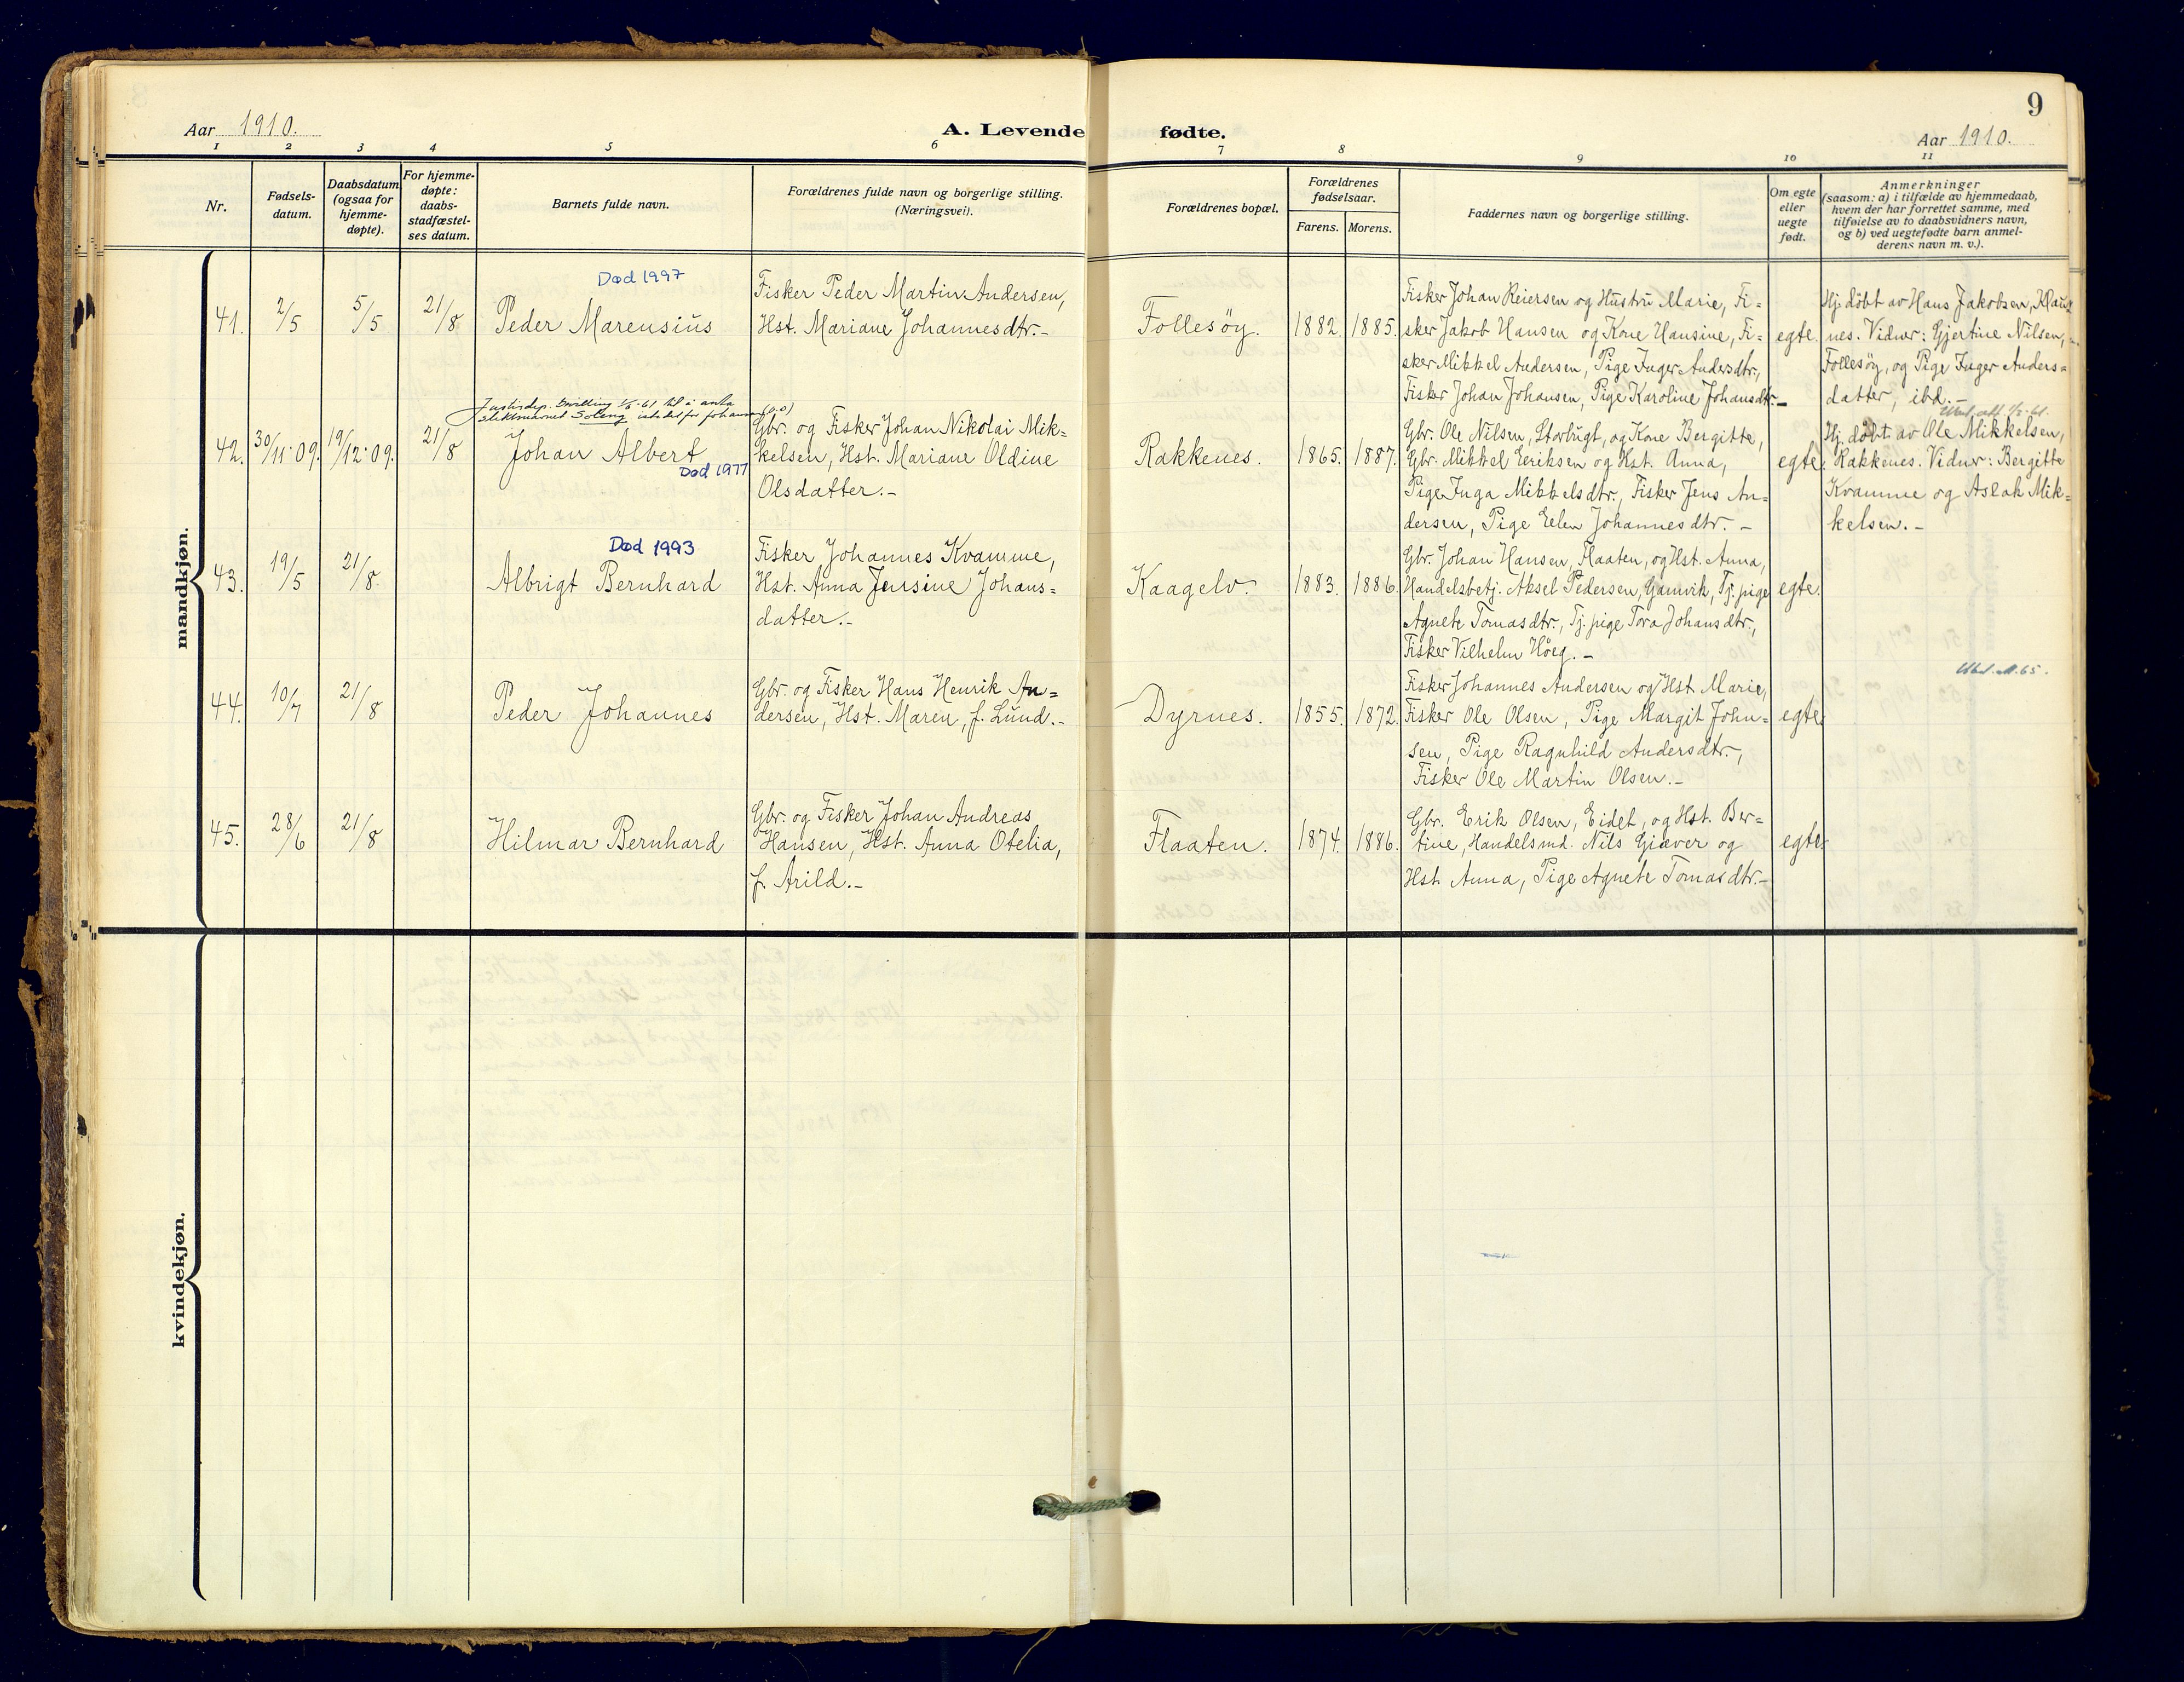 9
Aar 1910.
A. Levende fødte.
Aar 1910.
1 2 3 4 5 6 7 8 9 10 11
Nr.
Fødsels-
datum.
Daabsdatum
(ogsaa for
hjemme-
døpte).
For hjemme-
døpte:
daabs-
stadfæstel-
ses datum.
Barnets fulde navn.
Forældrenes fulde navn og borgerlige stilling.
(Næringsvei).
Forældrenes bopæl.
Forældrenes
fødselsaar.
Farens. Morens.
Faddernes navn og borgerlige stilling.
Om egte
eller
uegte
født.
Anmerkninger
(saasom: a) i tilfælde av hjemmedaab,
hvem der har forrettet samme, med
tilføielse av to daabsvidners navn,
og b) ved uegtefødte barn anmel-
derens navn m. v.).
mandkjøn.
41. 2/5 5/5 21/8
Død 1997
Peder Marensius
Fisker Peder Martin Andersen,
Hst. Mariane Johannesdtr.-
Follesöy. 1882. 1885.
Fisker Johan Reiersen og Hustru Marie, Fi-
sker Jakob Hansen og Kone Hansine, Fi-
sker Mikkel Andersen, Pige Inger Andersdtr.,
Fisker Johan Johansen, Pige Karoline Johansdtr.-
egte.
Hj. döbt av Hans Jakobsen,
nes. Vidner: Gjertine Nilsen,
Follesöy, og Pige Inger Anders-
datter, ibd.-
42. 30/11-09. 19/12-09. 21/8
Justisdep. bevilling 1/6-61 til å anta
slektsnavnet Soleng istedetfor Johansen
Johan Albert
Død 1977
Gbr. og Fisker Johan Nikolai Mik-
kelsen, Hst. Mariane Oldine
Olsdatter.-
Rakkenes. 1865. 1887.
Gbr. Ole Nilsen, Storbugt, og Kone Bergitte,
Gbr. Mikkel Eriksen og Hst. Anna,
Pige Inga Mikkelsdtr., Fisker Jens An-
dersen, Pige Elen Johannesdtr. -
egte.
Hj. döbt av Ole Mikkelsen,
Rakkenes. Vidner: Bergitte
Kvamme og Aslak Mik-
kelsen.-
43. 19/5 21/8.
Død 1993
Albrigt Bernhard
Fisker Johannes Kvamme,
Hst. Anna Jensine Johans-
datter.-
Kaagelv. 1883. 1886.
Gbr. Johan Hansen, Flaaten, og Hst. Anna,
Handelsbetj. Aksel Pedersen, Gamvik, Tj. pige
Agnete Tomasdtr., Tj. pige Tora Johansdtr.,
Fisker Vilhelm Höeg.-
egte.
44. 10/7 21/8
Peder Johannes
Gbr. og Fisker Hans Henrik An-
dersen, Hst. Maren, f. Lund.-
Dyrnes. 1855. 1872.
Fisker Johannes Andersen og Hst. Marie,
Fisker Ole Olsen, Pige Margit John-
sen, Pige Ragnhild Andersdtr.,
Fisker Ole Martin Olsen.-
egte.
45. 28/6 21/8
Hilmar Bernhard
Gbr. og Fisker Johan Andreas
Hansen, Hst. Anna Otelia,
f. Arild.-
Flaaten. 1874. 1886.
Gbr. Erik Olsen, Eidet, og Hst. Ber-
tine, Handelsmd. Nils Giæver og
Hst. Anna, Pige Agnete Tomasdtr.-
egte.
kvindekjøn.